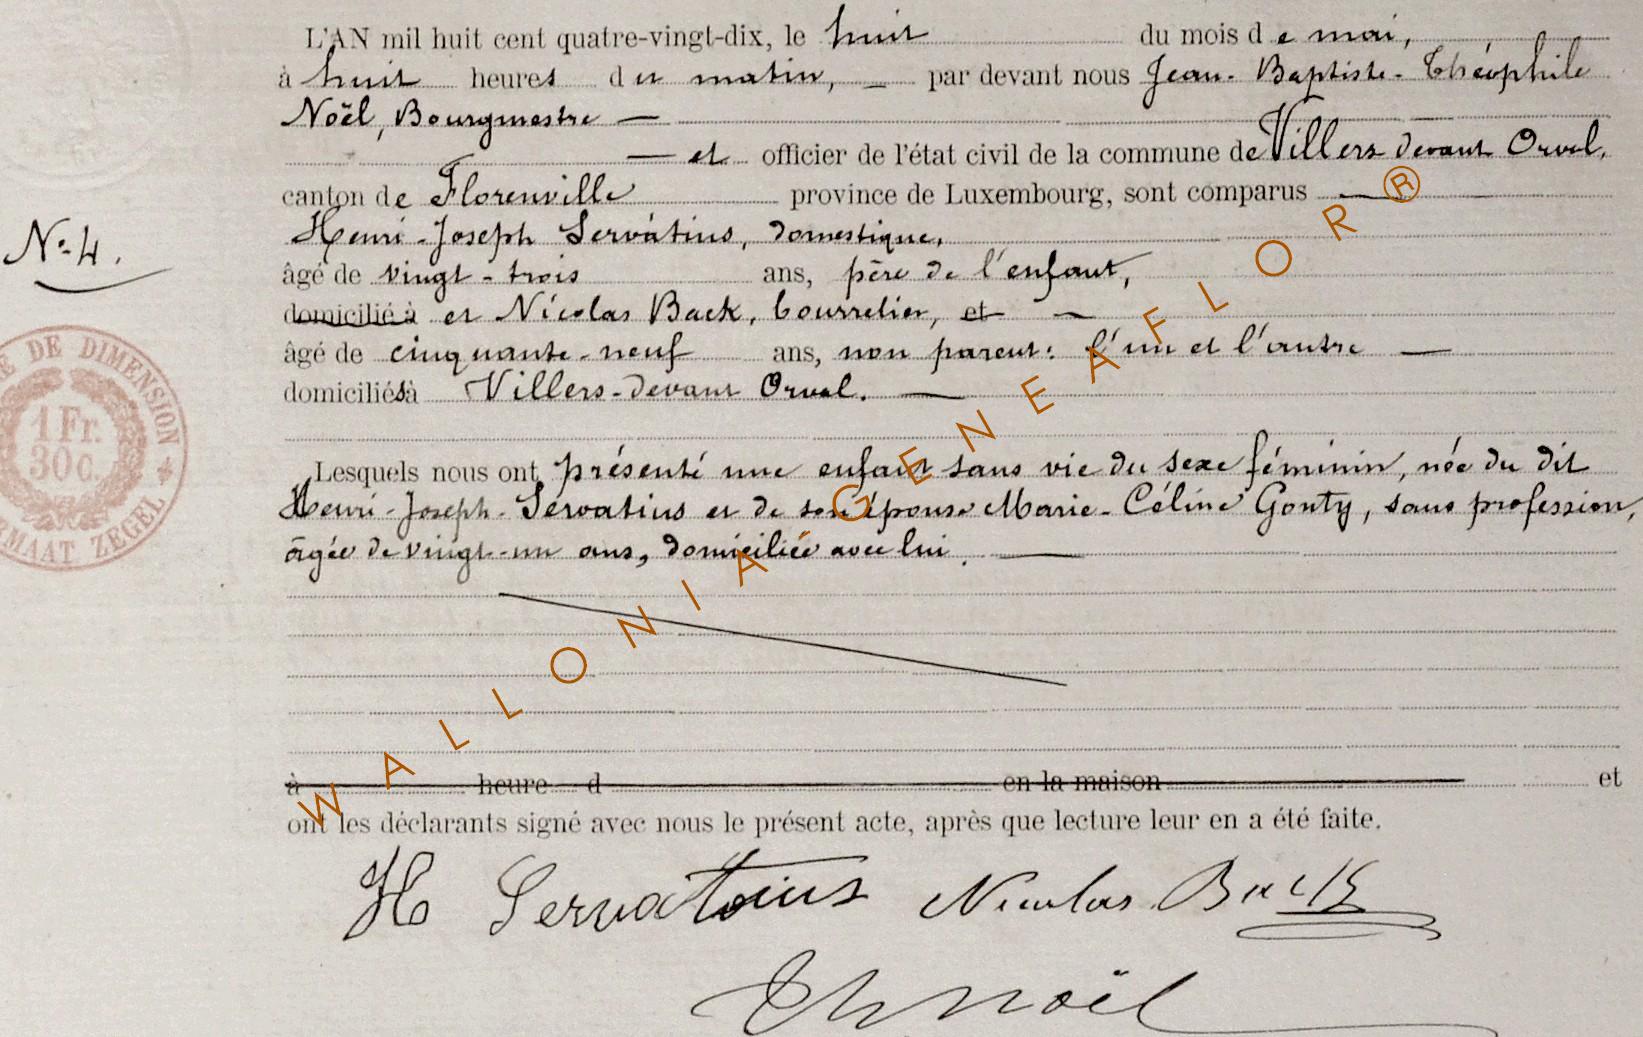 L'AN mil huit cent quatre-vingt-dix, le huit du mois de mai,
à huit heures du matin, — par devant nous Jean-Baptiste-Théophile
Noël, Bourgmestre —
— et officier de l'état civil de la commune de Villers devant Orval,
canton de Florenville province de Luxembourg, sont comparus —
N° 4.
Henri-Joseph Servatius, domestique,
âgé de vingt-trois ans, père de l'enfant,
domicilié à et Nicolas Back, bourrelier, et —
âgé de cinquante-neuf ans, non parent: l'un et l'autre —
domiciliés à Villers-devant Orval. —
E DE DIMENSION
1 Fr.
30 C.
RMAAT ZEGEL
Lesquels nous ont présenté une enfant sans vie du sexe féminin, née du dit
Henri-Joseph-Servatius et de son épouse Marie-Céline Gonty, sans profession,
âgée de vingt-un ans, domiciliée avec lui. —
à heure d en la maison et
ont les déclarants signé avec nous le présent acte, après que lecture leur en a été faite.
H Servatius Nicolas Back
Th Noël
WALLONIA GENEAFLOR®